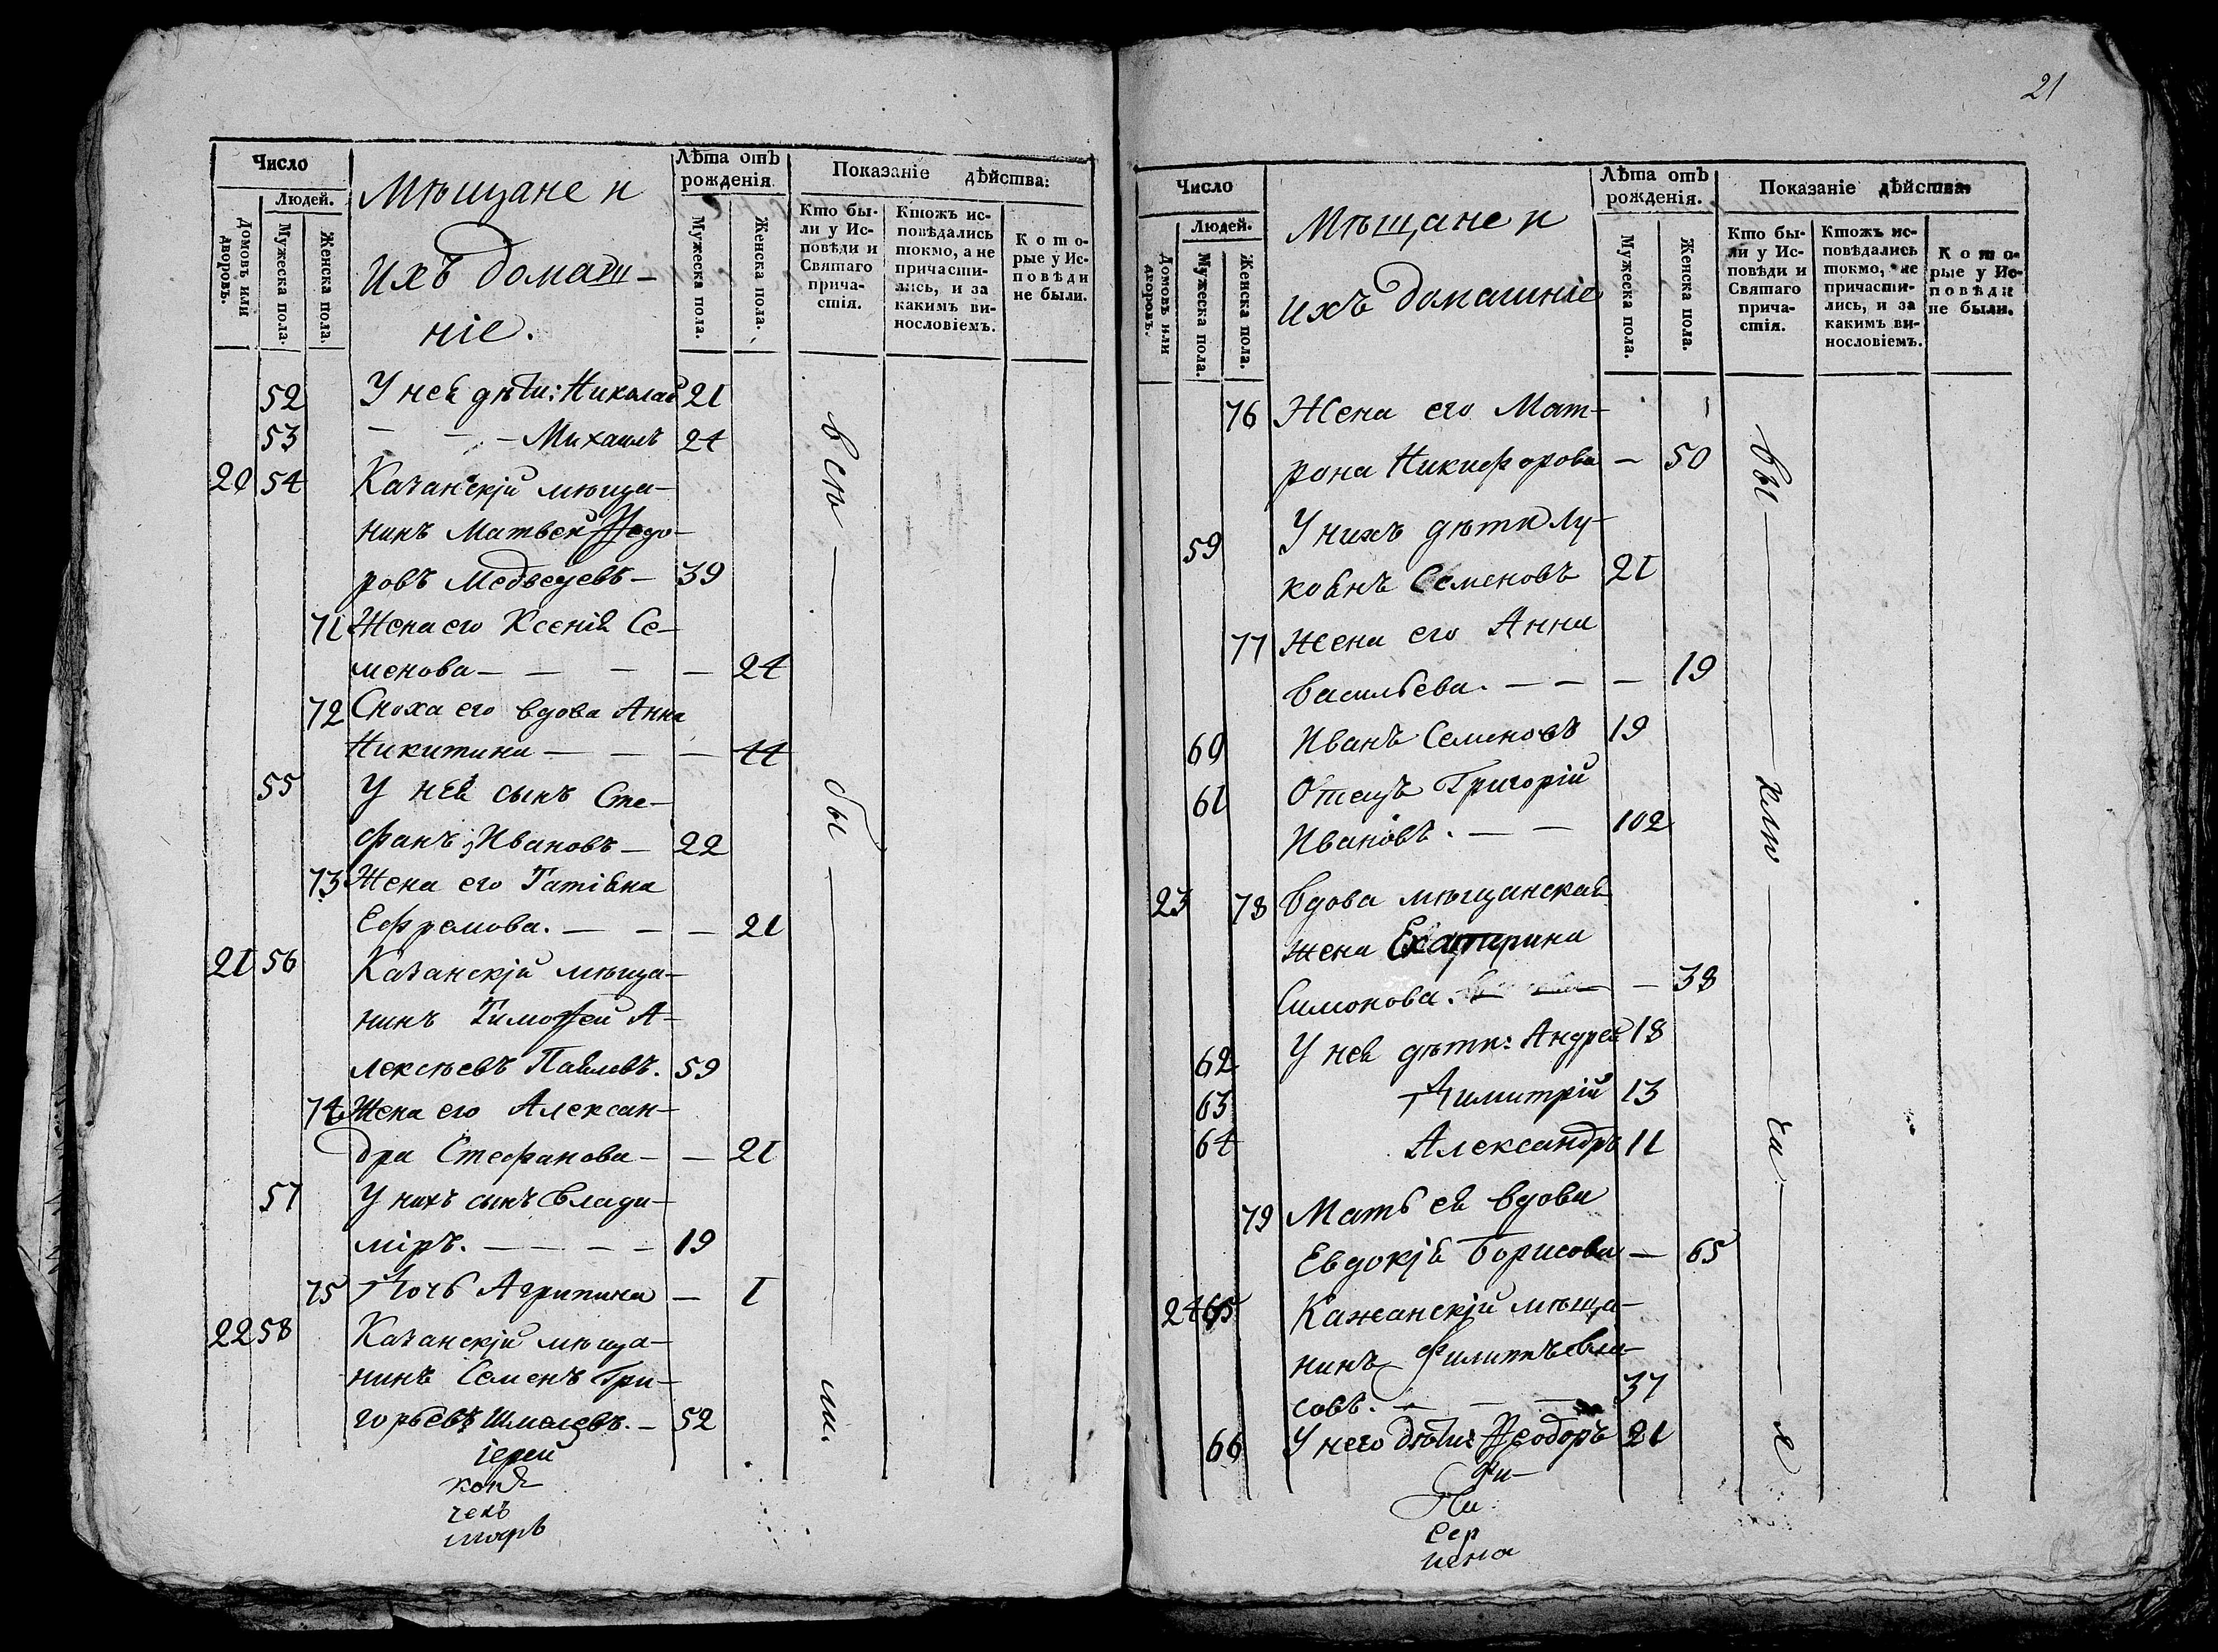 Число
Людей.
Домовъ или дворовъ.
Мужеска пола.
Женска пола.
Мѣщане и
ихъ домаш-
ніе.
Лѣта отъ
рожденія.
Мужеска пола.
Женска пола.
Показаніе дѣйства:
Кто бы-
ли у Ис-
повѣди и
Святаго
прича-
стія.
Ктожъ ис-
повѣдались
токмо, а не
причасти-
лись, и за
какимъ ви-
нословіемъ.
Кото-
рые у Ис-
повѣди
не были.
52 У нея дѣти: Николай 21
53 — — — Михаилъ 24
20 54 Казанскій мѣща-
нинъ Матвей Ѳедо-
ровъ Медведевъ — 39
71 Жена его Ксенія Се-
менова — — — — 24
72 Сноха его вдова Анна
Никитина — — — 44
55 У нея сынъ Сте-
фанъ Ивановъ — 22
73 Жена его Татіяна
Ефремова. — — — 21
21 56 Казанскій мѣща-
нинъ Тимоѳей А-
лексѣевъ Павловъ. 59
74 Жена его Алексан-
дра Стефанова — — 21
57 У нихъ сынъ Влади-
міръ. — — — — 19
75 Дочь Агрипина — 1
22 58 Казанскій мѣща-
нинъ Семенъ Гри-
горьевъ Шмелевъ. — 52
всѣ — бы — ли.
іерей
чекъ
21
Число
Людей.
Домовъ или дворовъ.
Мужеска пола.
Женска пола.
Мѣщане и
ихъ домашніе
Лѣта отъ
рожденія.
Мужеска пола.
Женска пола.
Показаніе дѣйства:
Кто бы-
ли у Ис-
повѣди и
Святаго
прича-
стія.
Ктожъ ис-
повѣдались
токмо, а не
причасти-
лись, и за
какимъ ви-
нословіемъ.
Кото-
рые у Ис-
повѣди
не были.
76 Жена его Мат-
рона Никифорова — 50
59 У нихъ дѣти Лу-
коянъ Семеновъ 21
77 Жена его Анна
Васильева. — — — 19
60 Иванъ Семеновъ 19
61 Отецъ Григорій
Ивановъ. — — 102
23 78 Вдова мѣщанская
жена Екатерина
Симонова. — 38
62 У нея дѣти: Андрей 18
63 Димитрій 13
64 Александръ 11
79 Мать ея вдова
Евдокія Борисова — 65
24 65 Казанскій мѣща-
нинъ Филиппъ Вла-
совъ. — — — 37
66 У него дѣти: Ѳеодоръ 21
Фи-
Ни
Сер